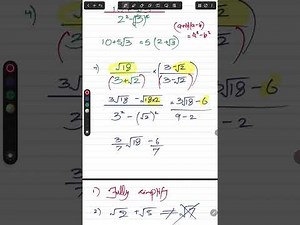 2²-(√3)²
(a+b)(a-b)
= a²-b²
10+5√3 = 5(2+√3)
√18 (3-√2)
(3+√2) (3-√2)
3√18 - √18×2 = 3√18 - 6
3² - (√2)² 9-2
3/7 √18 - 6/7
1) Fully simplify
2)